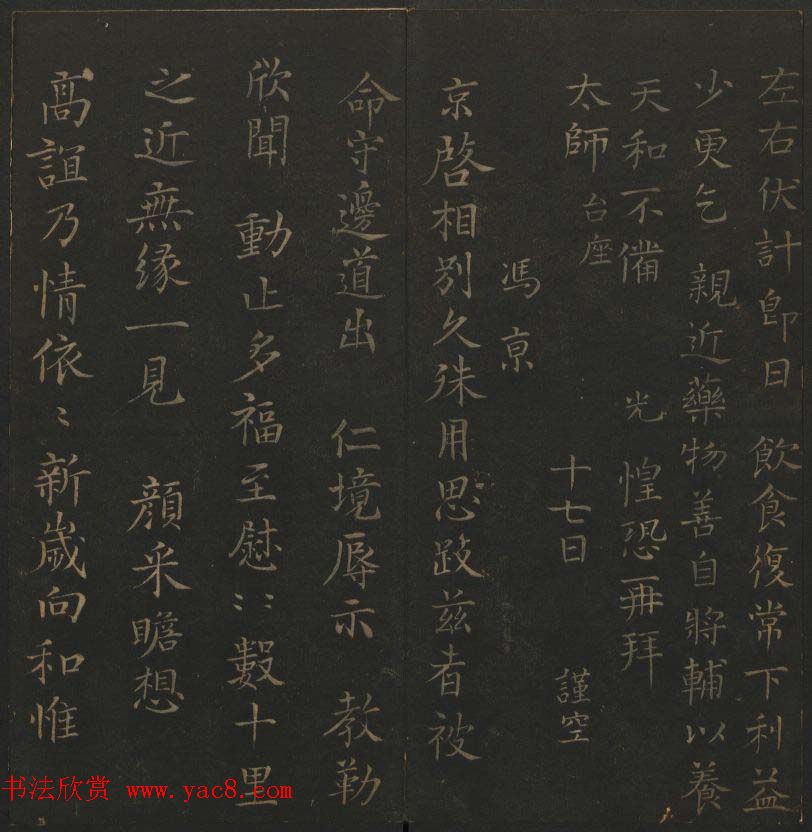 左右伏計即日　飲食復常下利益
少更乞　親近藥物善自將輔以養
天和不備　光　惶恐再拜
太師台座　十七日　謹空
馮京
京啓相別久殊用思跂茲者被
命守邊道出　仁境辱示　教勒
欣聞　動止多福至慰〻數十里
之近無緣一見　顏采瞻想
髙誼乃情依〻新歲向和惟
书法欣赏 www.yac8.com